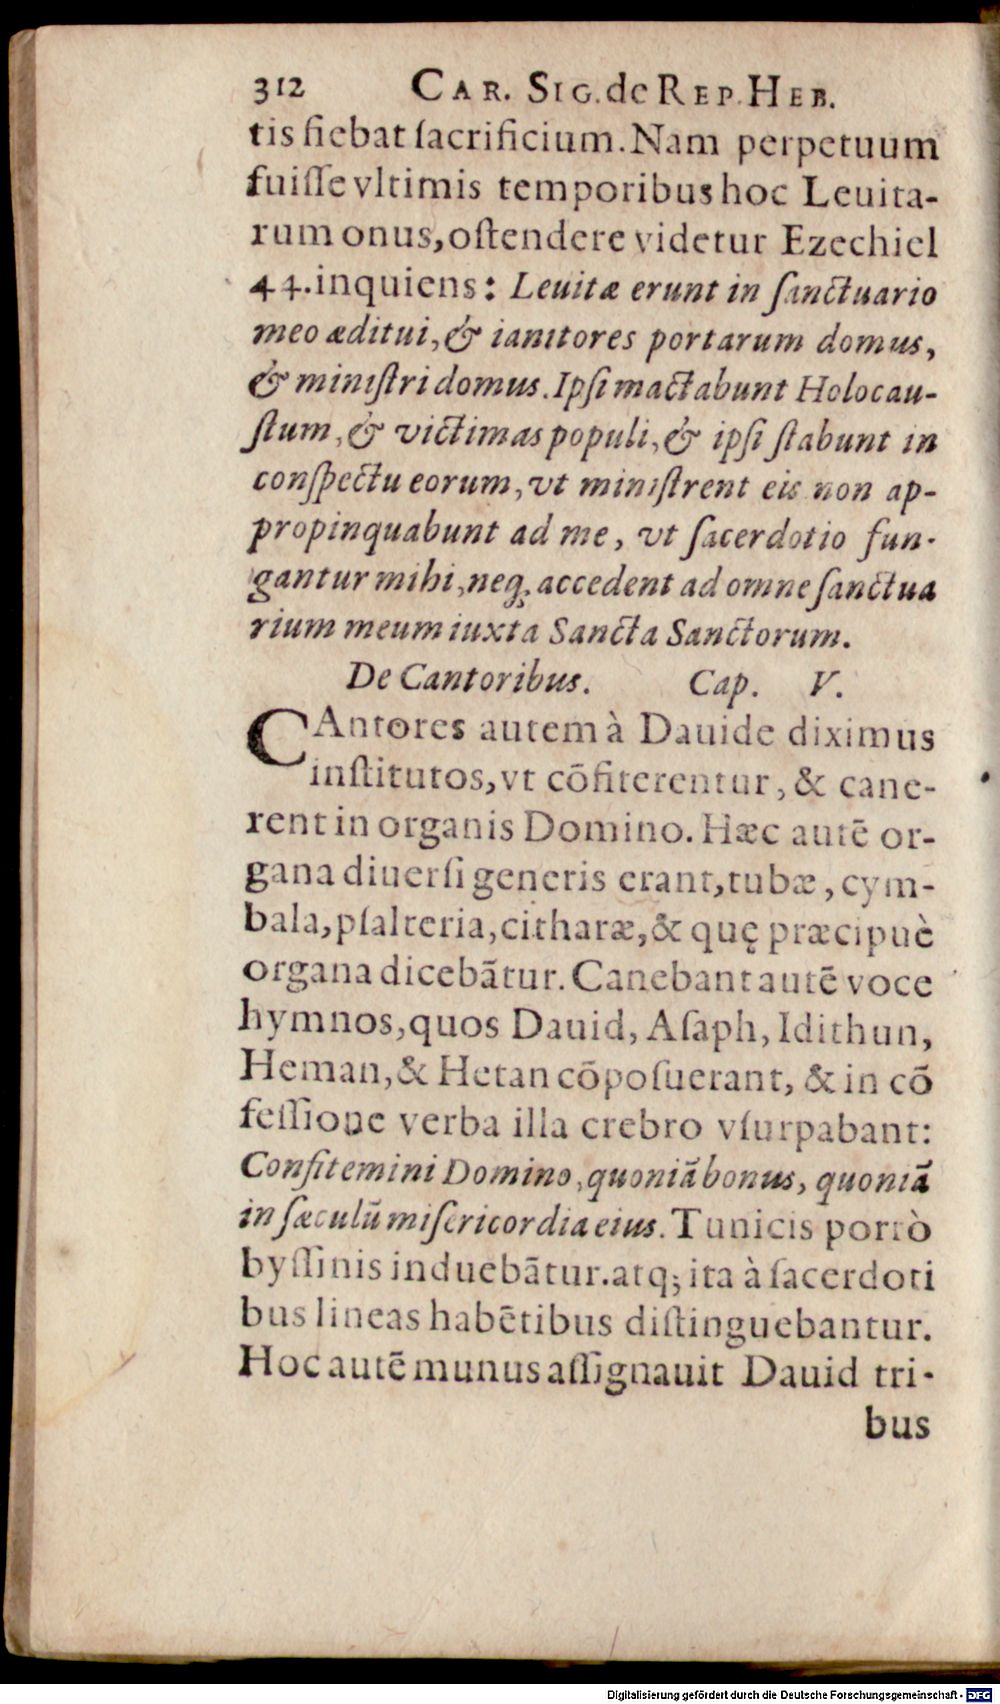 312 CAR. SIG. de REP. HEB.
tis fiebat ſacrificium. Nam perpetuum
fuiſſe vltimis temporibus hoc Leuita-
rum onus, oſtendere videtur Ezechiel
44. inquiens: Leuitæ erunt in ſanctuario
meo æditui, & ianitores portarum domus,
& miniſtri domus. Ipſi mactabunt Holocau-
ſtum, & victimas populi, & ipſi ſtabunt in
conſpectu eorum, vt miniſtrent eis non ap-
propinquabunt ad me, vt ſacerdotio fun-
gantur mihi, neq; accedent ad omne ſanctua
rium meum iuxta Sancta Sanctorum.
De Cantoribus. Cap. V.
CAntores autem à Dauide diximus
inſtitutos, vt cõfiterentur, & cane-
rent in organis Domino. Hæc autē or-
gana diuerſi generis erant, tubæ, cym-
bala, pſalteria, citharæ, & quę præcipuè
organa dicebãtur. Canebant autē voce
hymnos, quos Dauid, Aſaph, Idithun,
Heman, & Hetan cõpoſuerant, & in cõ
feſſione verba illa crebro vſurpabant:
Confitemini Domino, quoniã bonus, quoniã
in ſæculũ miſericordia eius. Tunicis porrò
byſſinis induebãtur. atq; ita à ſacerdoti
bus lineas habētibus diſtinguebantur.
Hoc autē munus aſſignauit Dauid tri-
bus
Digitalisierung gefördert durch die Deutsche Forschungsgemeinschaft - DFG